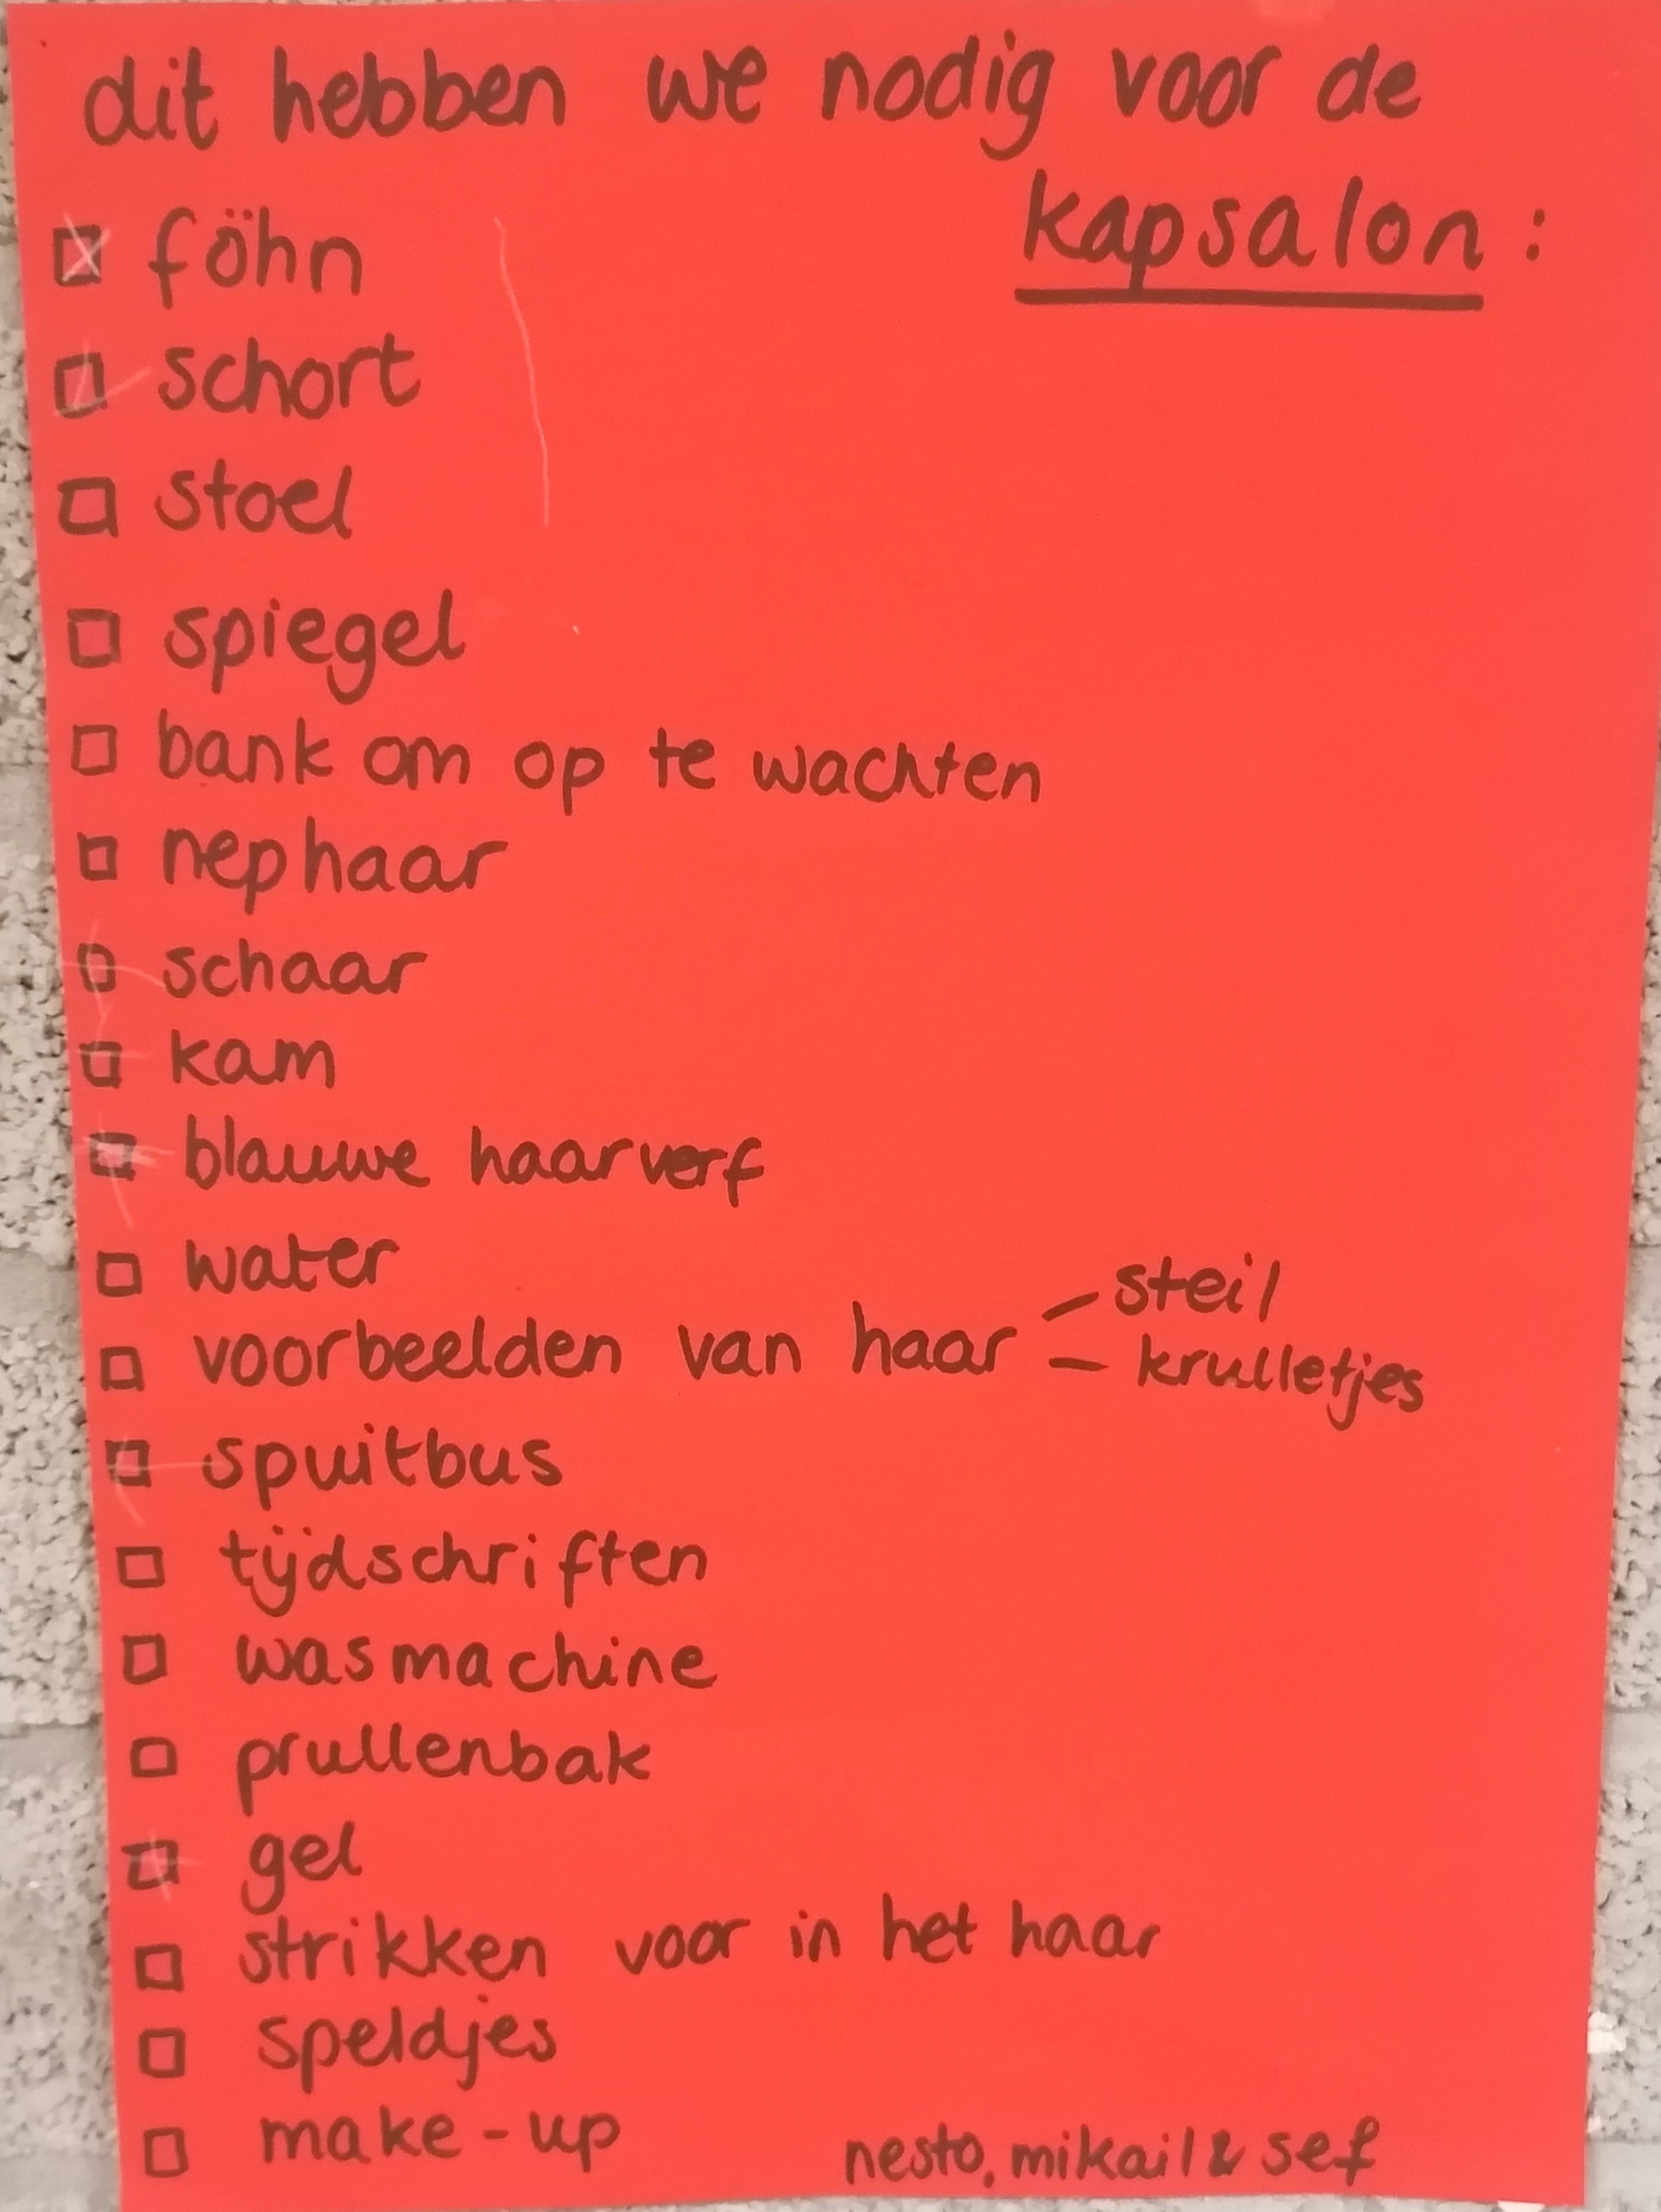 dit hebben we nodig voor de
kapsalon:
föhn
schort
stoel
spiegel
bank om op te wachten
nephaar
schaar
kam
blauwe haarverf
water
voorbeelden van haar - steil
- krulletjes
spuitbus
tijdschriften
wasmachine
prullenbak
gel
strikken voor in het haar
speldjes
make-up
nesto, mikail & sef